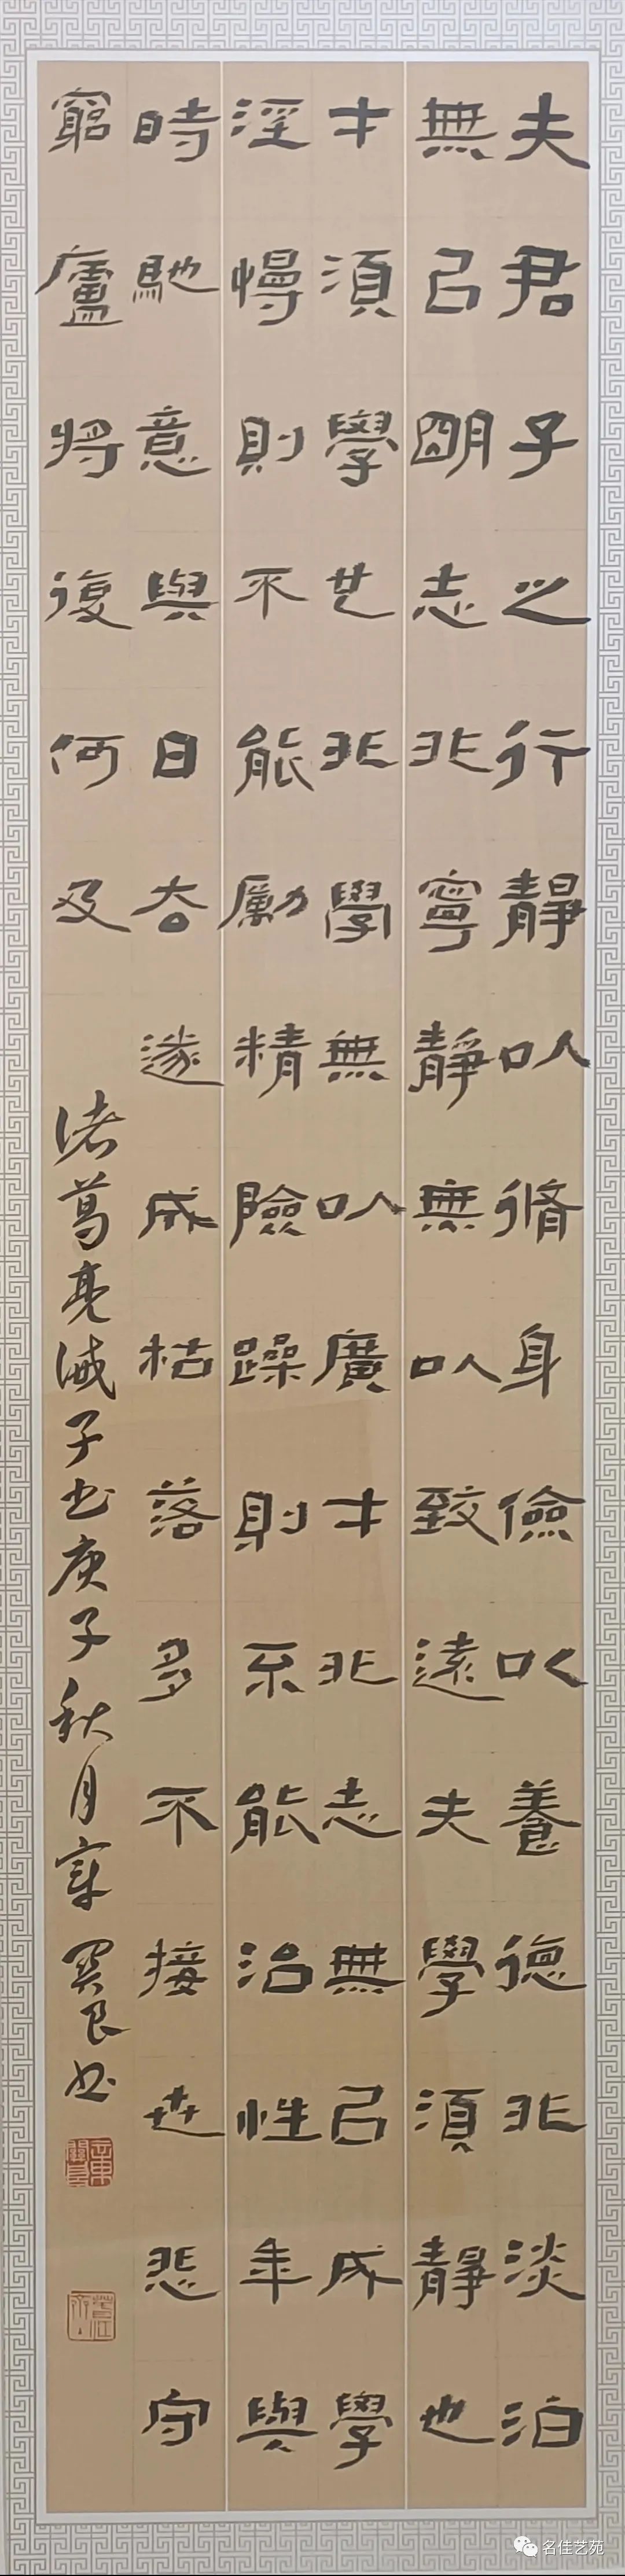 夫君子之行靜以脩身儉以養德非淡泊
無以明志非寧靜無以致遠夫學須靜也
才須學也非學無以廣才非志無以成學
淫慢則不能勵精險躁則不能治性年與
時馳意與日去遂成枯落多不接世悲守
窮廬將復何及
诸葛亮诫子书庚子秋月书
名佳艺苑